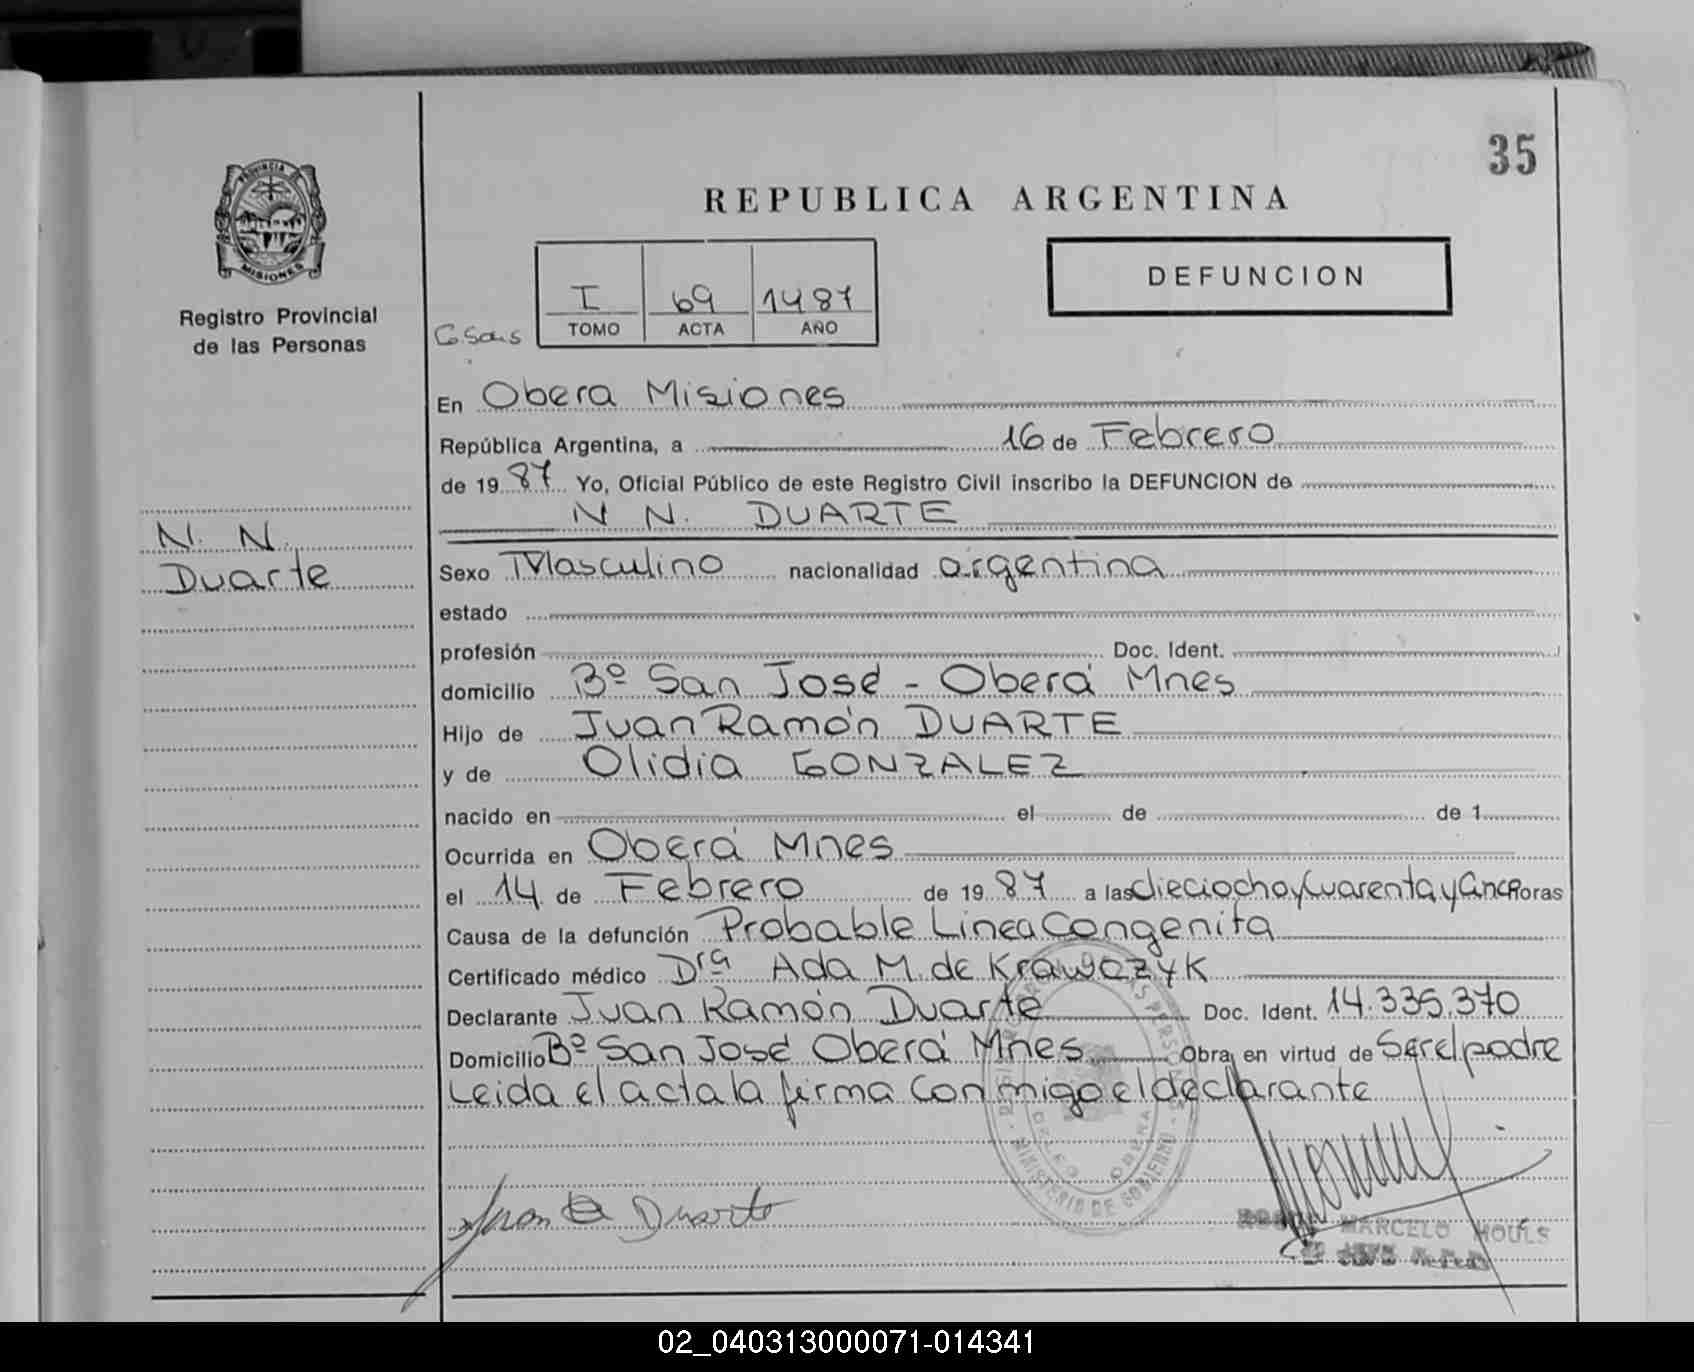 35
REPUBLICA ARGENTINA
PROVINCIA DE
MISIONES
Registro Provincial
de las Personas
I 69 1987
TOMO ACTA AÑO
DEFUNCION
En Obera Misiones
República Argentina, a 16 de Febrero
de 1987 Yo, Oficial Público de este Registro Civil inscribo la DEFUNCION de
N N. DUARTE
N. N.
Duarte
Sexo Masculino nacionalidad argentina
estado
profesión Doc. Ident.
domicilio Bº San José - Oberá Mnes
Hijo de Juan Ramón DUARTE
y de Olidia GONZALEZ
nacido en el de de 1
Ocurrida en Oberá Mnes
el 14 de Febrero de 1987 a las dieciocho y Cuarenta y Cinco horas
Causa de la defunción Probable Linea Congenita
Certificado médico Dra Ada M. de Krawczyk
Declarante Juan Ramón Duarte Doc. Ident. 14.335.370
Domicilio Bº San José Oberá Mnes Obra en virtud de Ser el padre
Leida el acta la firma Conmigo el declarante
MINISTERIO DE GOBIERNO
Juan Duarte
MARCELO
02_040313000071-014341